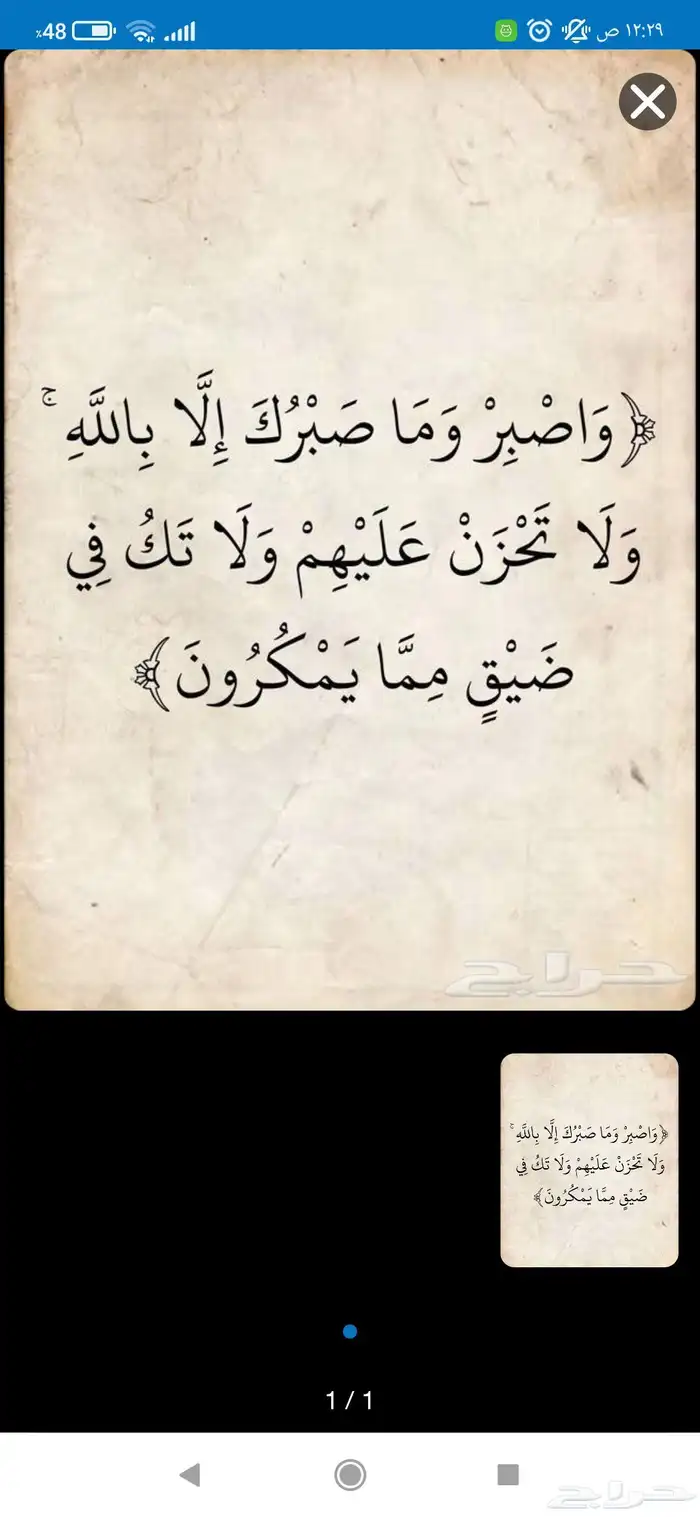 ٪48
١٢:٢٩ ص
﴿وَاصْبِرْ وَمَا صَبْرُكَ إِلَّا بِاللَّهِ ۚ
وَلَا تَحْزَنْ عَلَيْهِمْ وَلَا تَكُ فِي
ضَيْقٍ مِمَّا يَمْكُرُونَ﴾
حراج
﴿وَاصْبِرْ وَمَا صَبْرُكَ إِلَّا بِاللَّهِ ۚ
وَلَا تَحْزَنْ عَلَيْهِمْ وَلَا تَكُ فِي
ضَيْقٍ مِمَّا يَمْكُرُونَ﴾
1 / 1
حراج